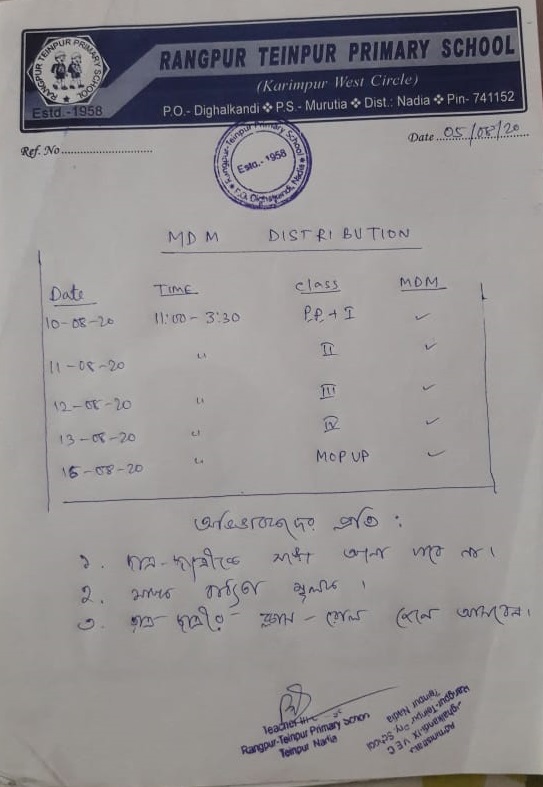 RANGPUR TEINPUR PRIMARY SCHOOL
(Karimpur West Circle)
P.O.- Dighalkandi ❖ P.S.- Murutia ❖ Dist.: Nadia ❖ Pin- 741152
RANGPUR TEINPUR PRIMARY SCHOOL
Estd.-1958
Ref. No
Date 05/08/20
Rangpur-Teinpur Primary School
Estd.- 1958
P.O. Dighalkandi, Nadia
MDM DISTRIBUTION
Date TIME Class MDM
10-08-20 11:00-3:30 P.P. + I ✓
11-08-20 " II ✓
12-08-20 " III ✓
13-08-20 " IV ✓
15-08-20 " MOP UP ✓
অভিভাবকদের প্রতি :
১. ছাত্র-ছাত্রীকে সঙ্গে আনা যাবে না।
২. মাস্ক বাধ্যতা মূলক।
৩. ছাত্র ছাত্রীর ক্লাস - রোল জেনে আসবেন।
Teacher
Rangpur-Teinpur Primary School
Teinpur Nadia
Rangpur-Teinpur Pry School
Teinpur Nadia